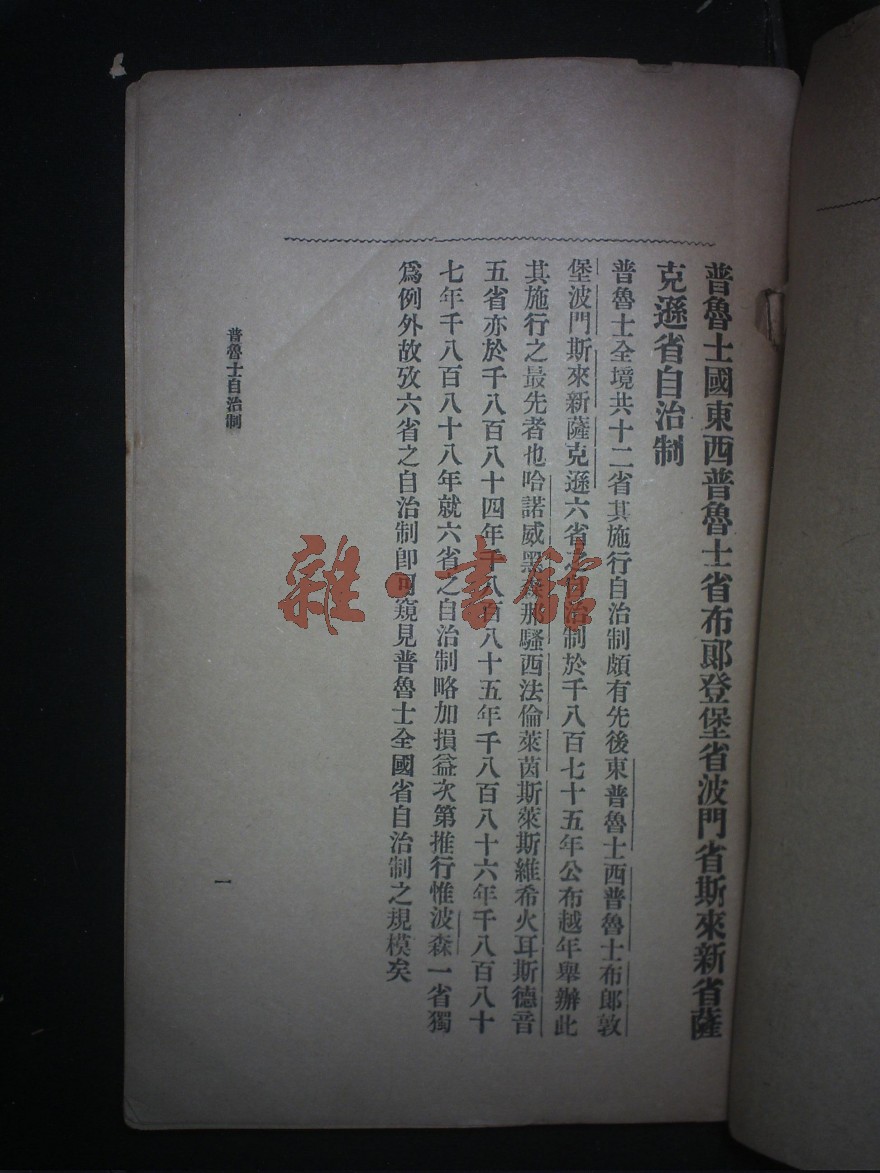 普魯士國東西普魯士省布郞登堡省波門省斯來新省薩
克遜省自治制
普魯士全境共十二省其施行自治制頗有先後東普魯士西普魯士布郞敦
堡波門斯來新薩克遜六省之自治制於千八百七十五年公布越年舉辦此
其施行之最先者也哈諾威黑 那騷西法倫萊茵斯萊斯維希火耳斯德音
五省亦於千八百八十四年千八百八十五年千八百八十六年千八百八十
七年千八百八十八年就六省之自治制略加損益次第推行惟波森一省獨
爲例外故攷六省之自治制卽可窺見普魯士全國省自治制之規模矣
普魯士自治制
一
雜·書館